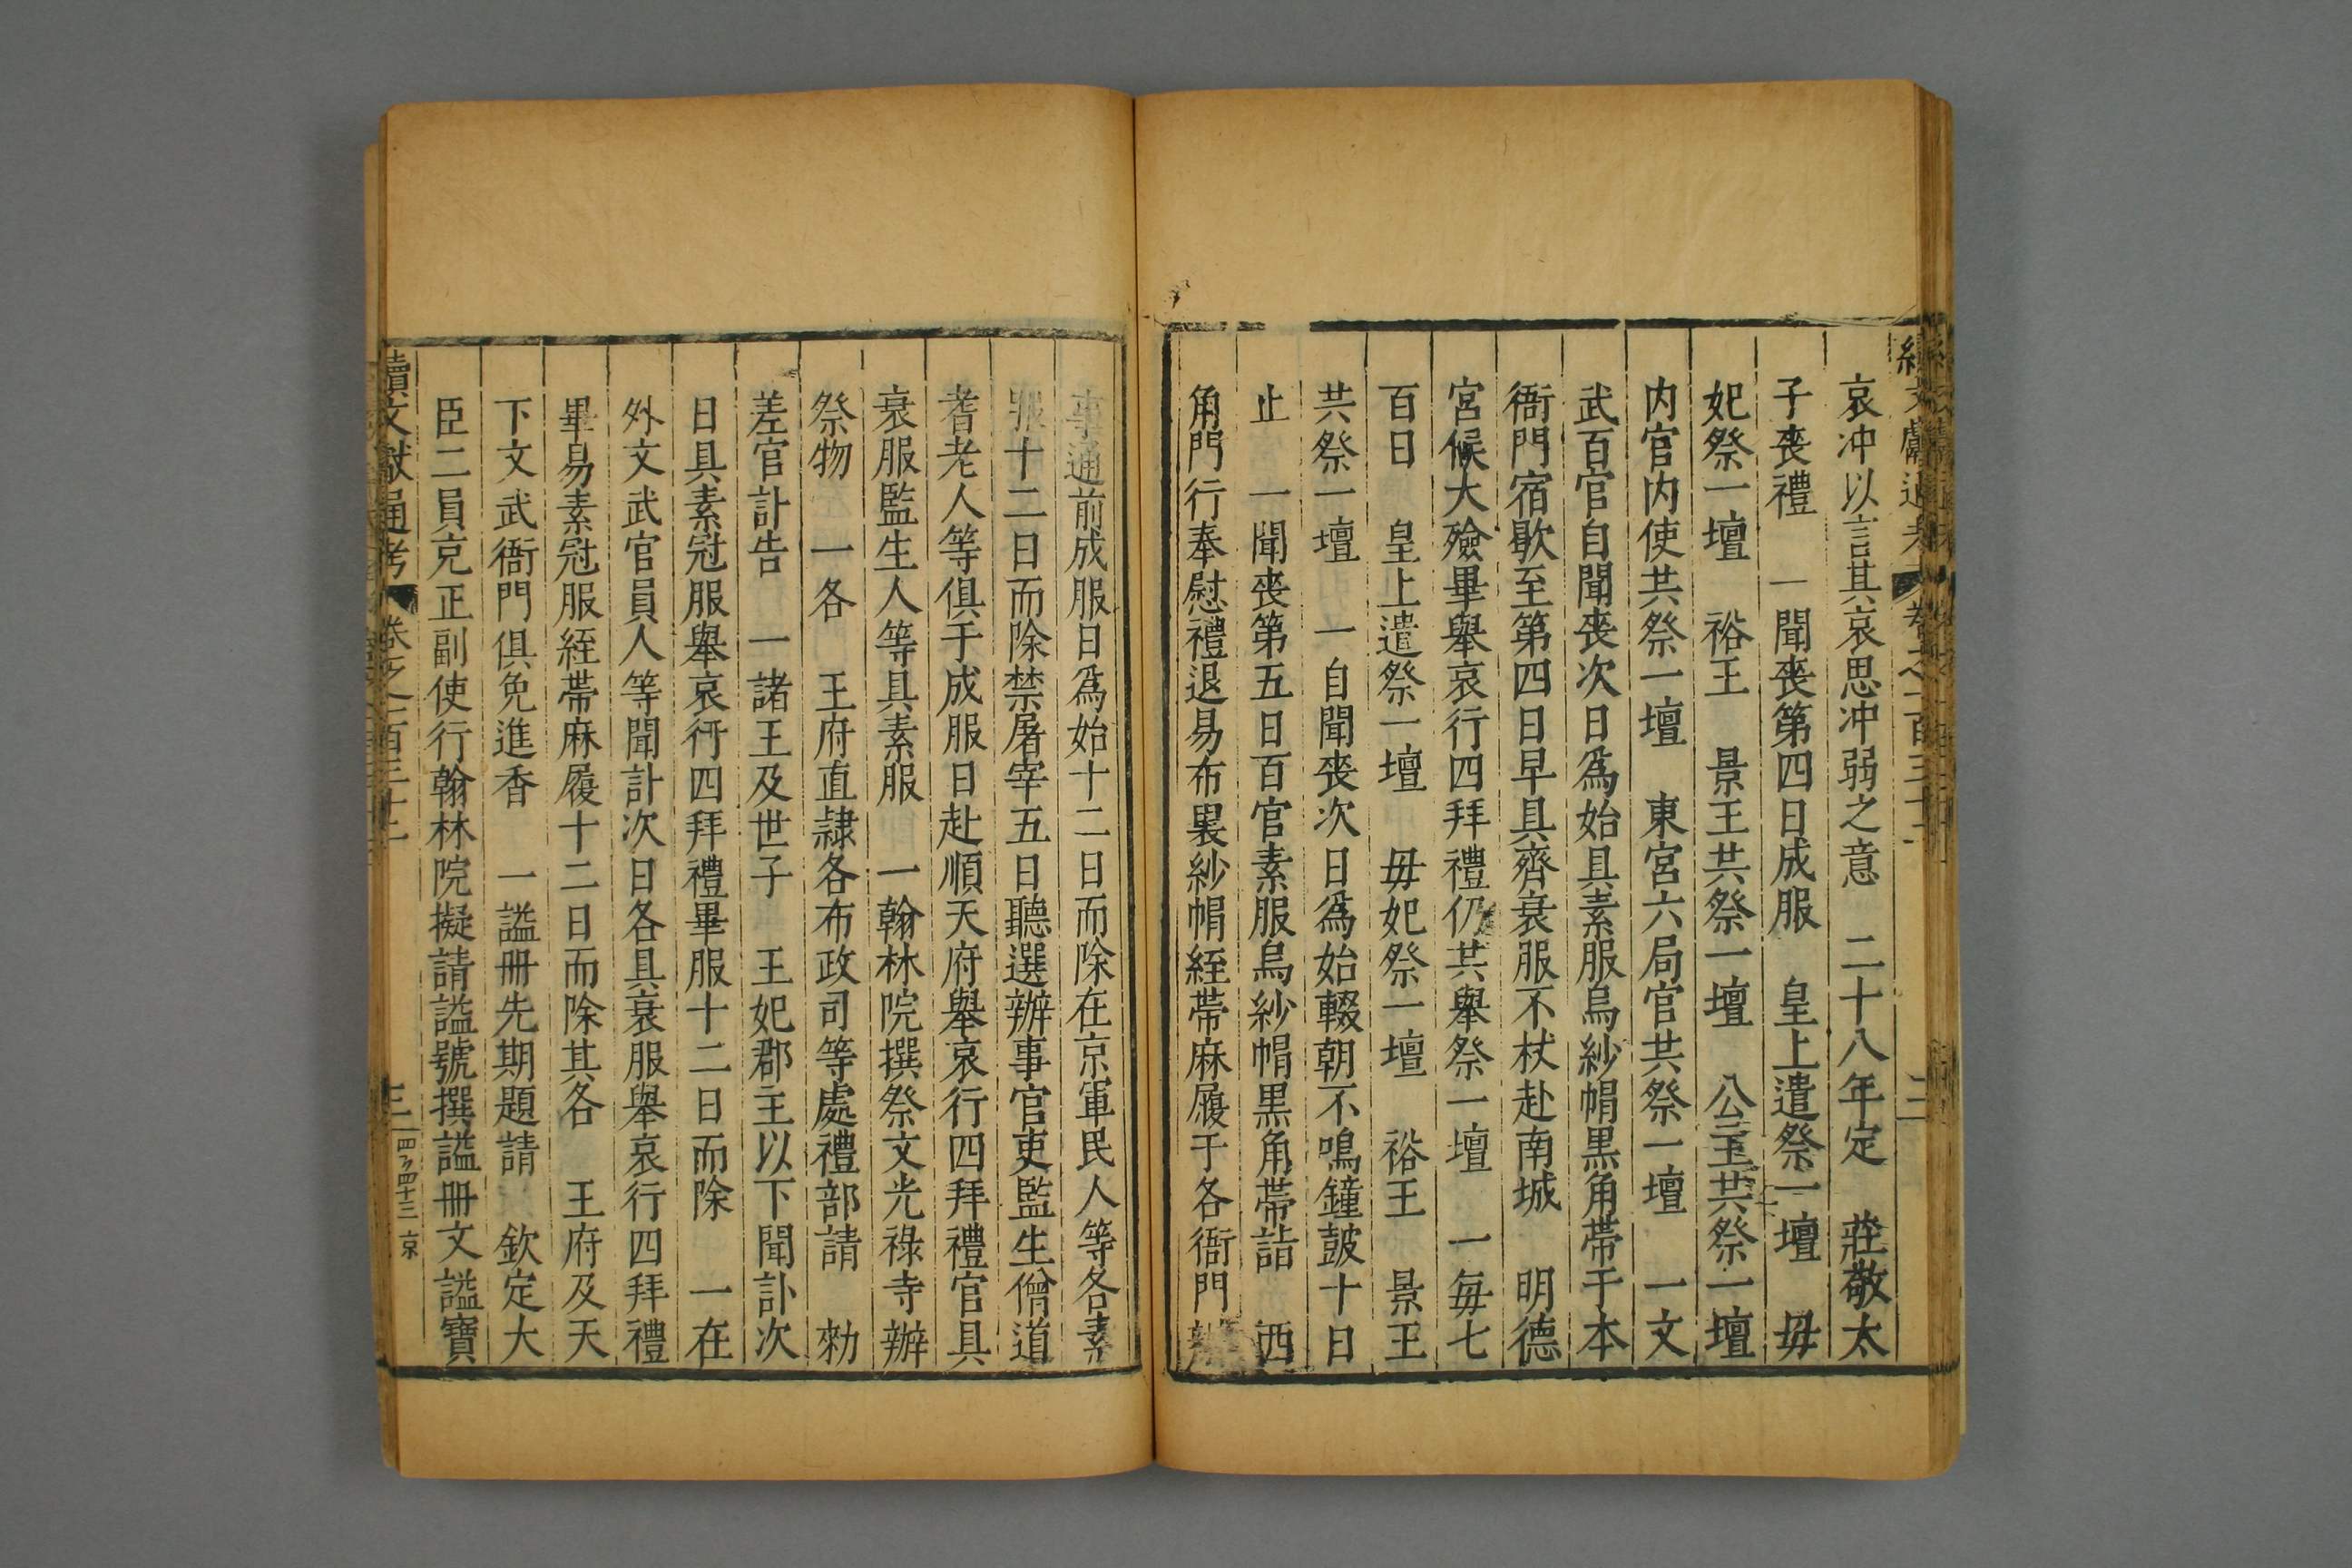 哀冲以言其哀思冲弱之意　二十八年定　莊敬太
子喪禮　一聞喪第四日成服　皇上遣祭一壇　毋
妃祭一壇　裕王　景王共祭一壇　公主共祭一壇
内官内使共祭一壇　東宮六局官共祭一壇　一文
武百官自聞喪次日爲始具素服烏紗帽黒角帶于本
衙門宿歇至第四日早具齊衰服不杖赴南城　明德
宮候大殮畢舉哀行四拜禮仍共舉祭一壇　一每七
百日　皇上遣祭一壇　毋妃祭一壇　裕王　景王
共祭一壇　一自聞喪次日爲始輟朝不鳴鐘皷十日
止　一聞喪第五日百官素服烏紗帽黒角帶詣　西
角門行奉慰禮退易布裹紗帽絰帶麻履于各衙門辦
事通前成服日爲始十二日而除在京軍民人等各素
服十二日而除禁屠宰五日聽選辦事官吏監生僧道
耆老人等俱于成服日赴順天府舉哀行四拜禮官具
衰服監生人等具素服　一翰林院撰祭文光祿寺辦
祭物　一各　王府直隷各布政司等處禮部請　勑
差官訃告　一諸王及世子　王妃郡主以下聞訃次
日具素冠服舉哀行四拜禮畢服十二日而除　一在
外文武官員人等聞訃次日各具衰服舉哀行四拜禮
畢易素冠服絰帶麻履十二日而除其各　王府及天
下文武衙門俱免進香　一謚冊先期題請　欽定大
臣二員充正副使行翰林院擬請謚號撰謚冊文謚寶
續文獻通考　卷之一百三十二　三　四〻四十三　京